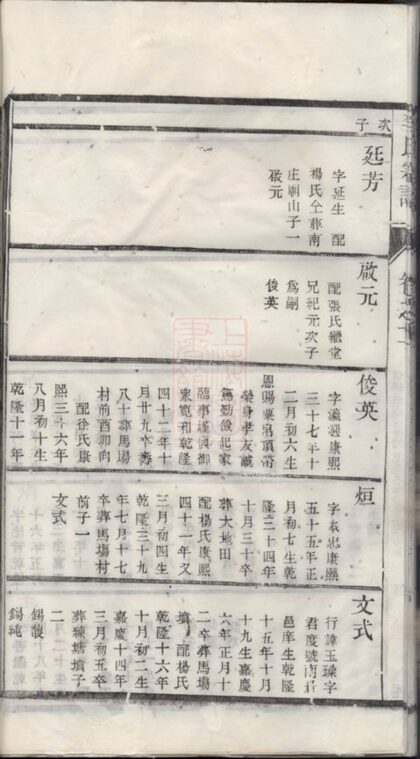 次子
廷芳
字延生 配
楊氏仝葬南
庄廟山子一
啟元
啟元
配張氏繼堂
兄紀元次子
爲嗣
俊英
俊英
三十七年十
二月初六生
恩賜粟帛頂帶
榮身孝友誠
篤勤儉起家
臨事謹慎御
衆寬和乾隆
四十二年十
月廿九卒壽
八十葬馬塲
村前酉卯向
配徐氏康
熙三十六年
八月初十生
乾隆十一年
烜
字本忠康熙
五十五年正
月初七生乾
隆三十四年
十月三十卒
葬大地田
配楊氏康熙
四十一年又
乾隆三十九
年七月十七
卒葬馬塲村
前子一
文式
文式
行諱玉璪字
君度號
邑庠生乾隆
十五年十月
十九生嘉慶
六年正月十
二卒葬馬塲
墳 配楊氏
乾隆十六年
十月初二生
嘉慶十四年
三月初五卒
葬練塘墳子
二
錫馥
錫純